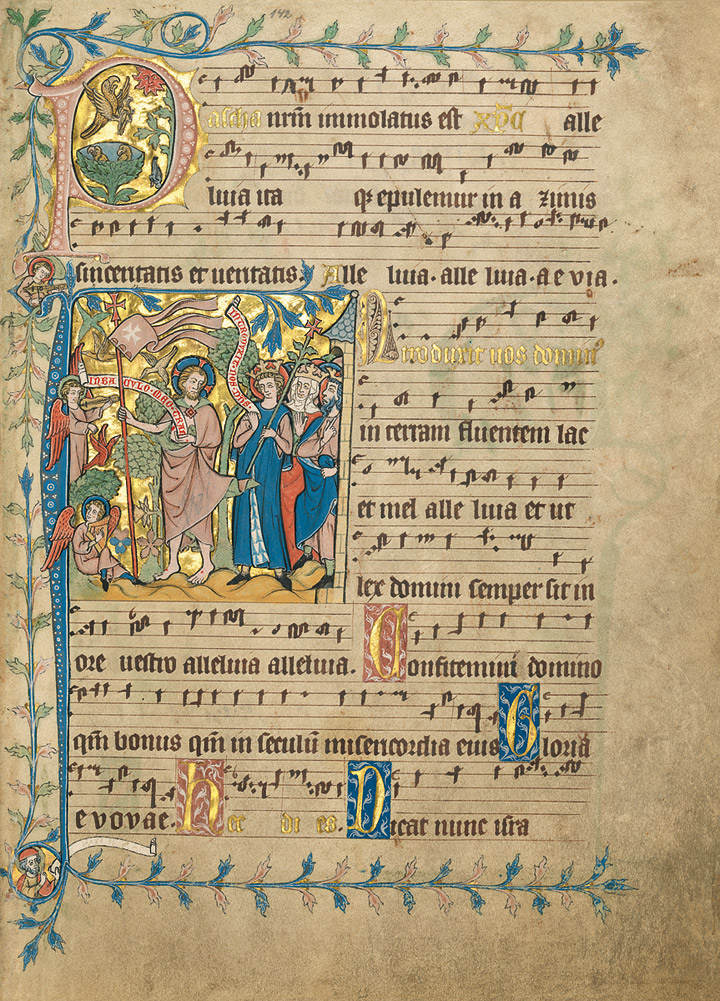 142
Pascha nrm̃ immolatus est xp̄c alle
luia ita qꝫ epulemur in a zimis
sinceritatis et ueritatis. Alle luia. alle luia. a e v i a.
INBACVLO MEO TRA
Introduxit uos domin᷒
in terram fluentem lac
et mel alle luia et ut
lex domini semper sit in
ore uestro alleluia alleluia. Confitemini domino
qm̃ bonus qm̃ in seculũ misericordia eius Gloria
e v o v a e. Hec di es. Dicat nunc isra